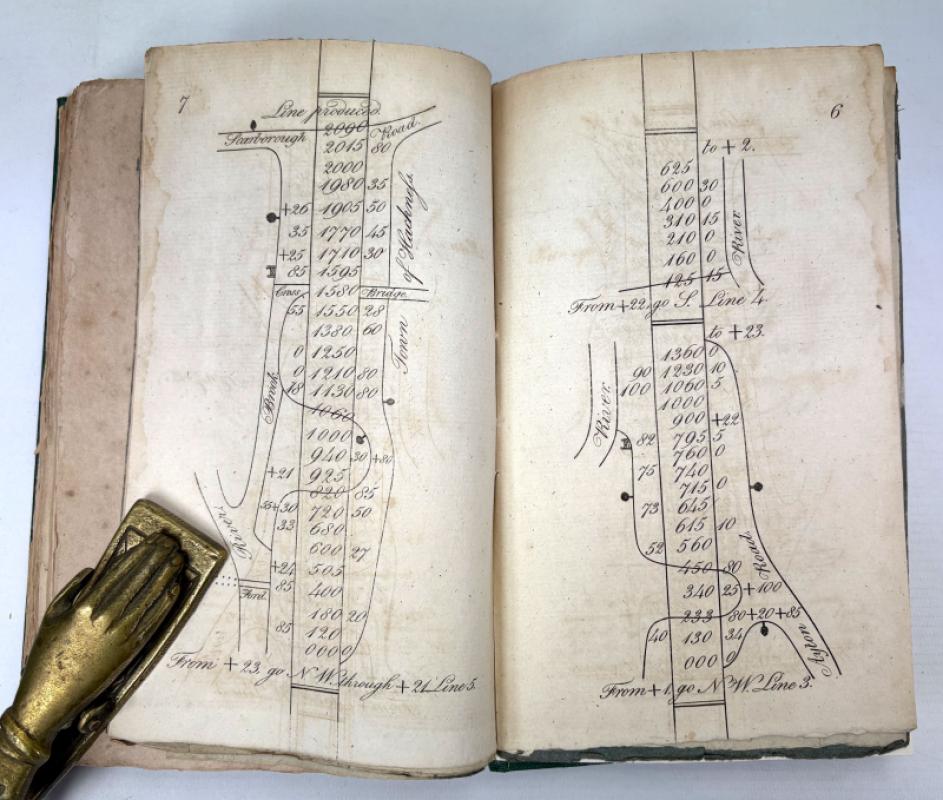 7
Line produced.
Scarborough 2090 Road.
2015 80
2000
1980 35
+26 1905 50
35 1770 45
+25 1710 30
85 1595
Cross 1580 Bridge.
55 1550 28
1380 60
0 1250
0 1210 80
18 1130 80
1060
1000
940 30 +80
+21 925
820 85
35+30 720 50
33 680
600 27
+24 505
85 400
180 20
85 120
0000
Brook.
River.
Ford.
Town of Hackness.
From + 23, go N W. through + 21 Line 5.
6
to + 2.
625
600 30
400 0
310 15
210 0
160 0
125 15
River
From +22, go S. Line 4.
to + 23.
1360 0
90 1230 10
100 1060 5
1000
900 +22
82 795 5
760 0
75 740
715 0
73 645
615 10
52 560
450 80
340 25 +100
233 80+20+85
40 130 34
000 0
River.
Ayton Road.
From +1, go N W. Line 3.